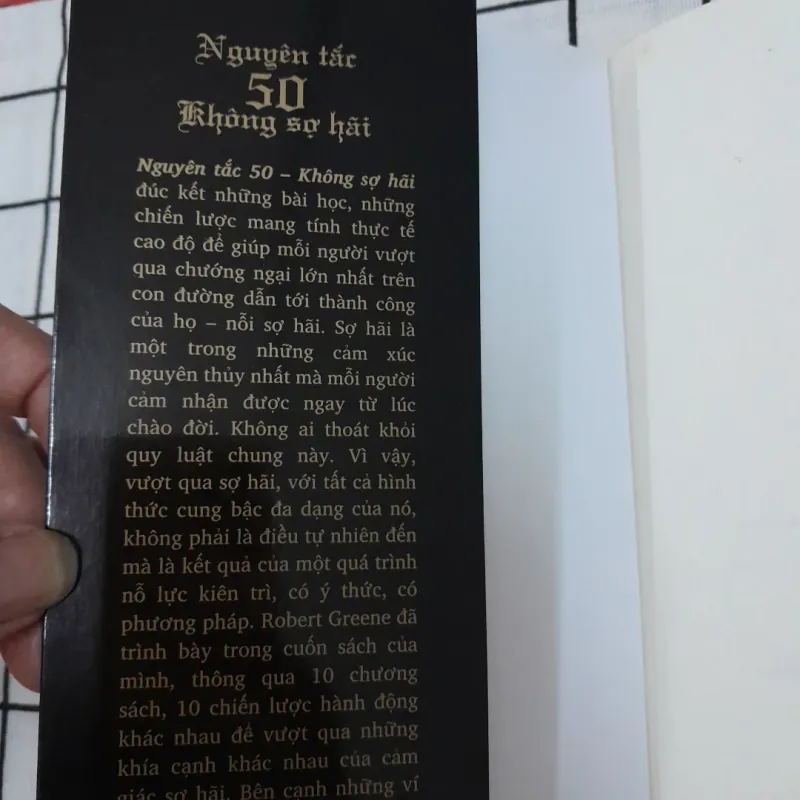 Nguyên tắc
50
Không sợ hãi
Nguyên tắc 50 – Không sợ hãi
đúc kết những bài học, những
chiến lược mang tính thực tế
cao độ để giúp mỗi người vượt
qua chướng ngại lớn nhất trên
con đường dẫn tới thành công
của họ – nỗi sợ hãi. Sợ hãi là
một trong những cảm xúc
nguyên thủy nhất mà mỗi người
cảm nhận được ngay từ lúc
chào đời. Không ai thoát khỏi
quy luật chung này. Vì vậy,
vượt qua sợ hãi, với tất cả hình
thức cung bậc đa dạng của nó,
không phải là điều tự nhiên đến
mà là kết quả của một quá trình
nỗ lực kiên trì, có ý thức, có
phương pháp. Robert Greene đã
trình bày trong cuốn sách của
mình, thông qua 10 chương
sách, 10 chiến lược hành động
khác nhau để vượt qua những
khía cạnh khác nhau của cảm
giác sợ hãi. Bên cạnh những ví